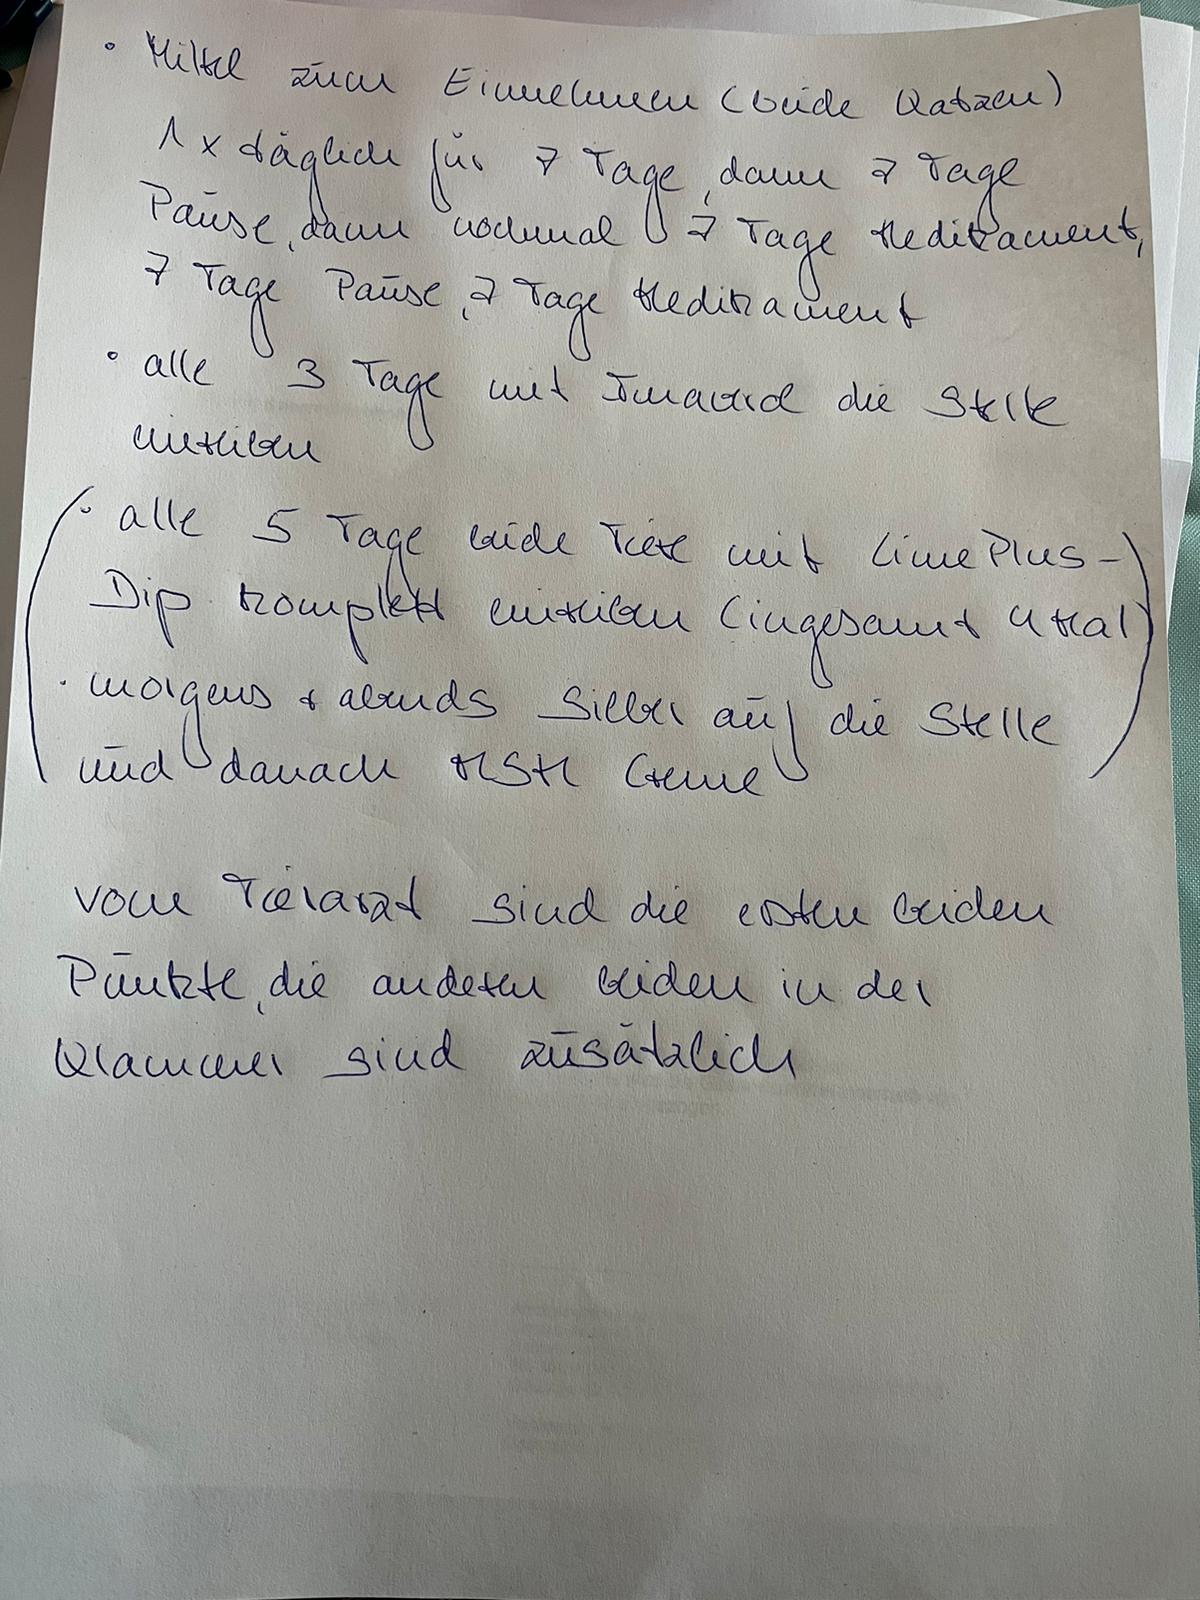 • Mittel zum Einnehmen (beide Katzen)
1x täglich für 7 Tage, dann 7 Tage
Pause, dann nochmal 7 Tage Medikament,
7 Tage Pause, 7 Tage Medikament
• alle 3 Tage mit Imaverol die Stelle
einreiben
(• alle 5 Tage beide Tiere mit LimePlus-
Dip komplett einreiben (ingesamt 4 Mal)
• morgens + abends Silber auf die Stelle
und danach MSM Creme)
vom Tierarzt sind die ersten beiden
Punkte, die anderen beiden in der
Klammer sind zusätzlich